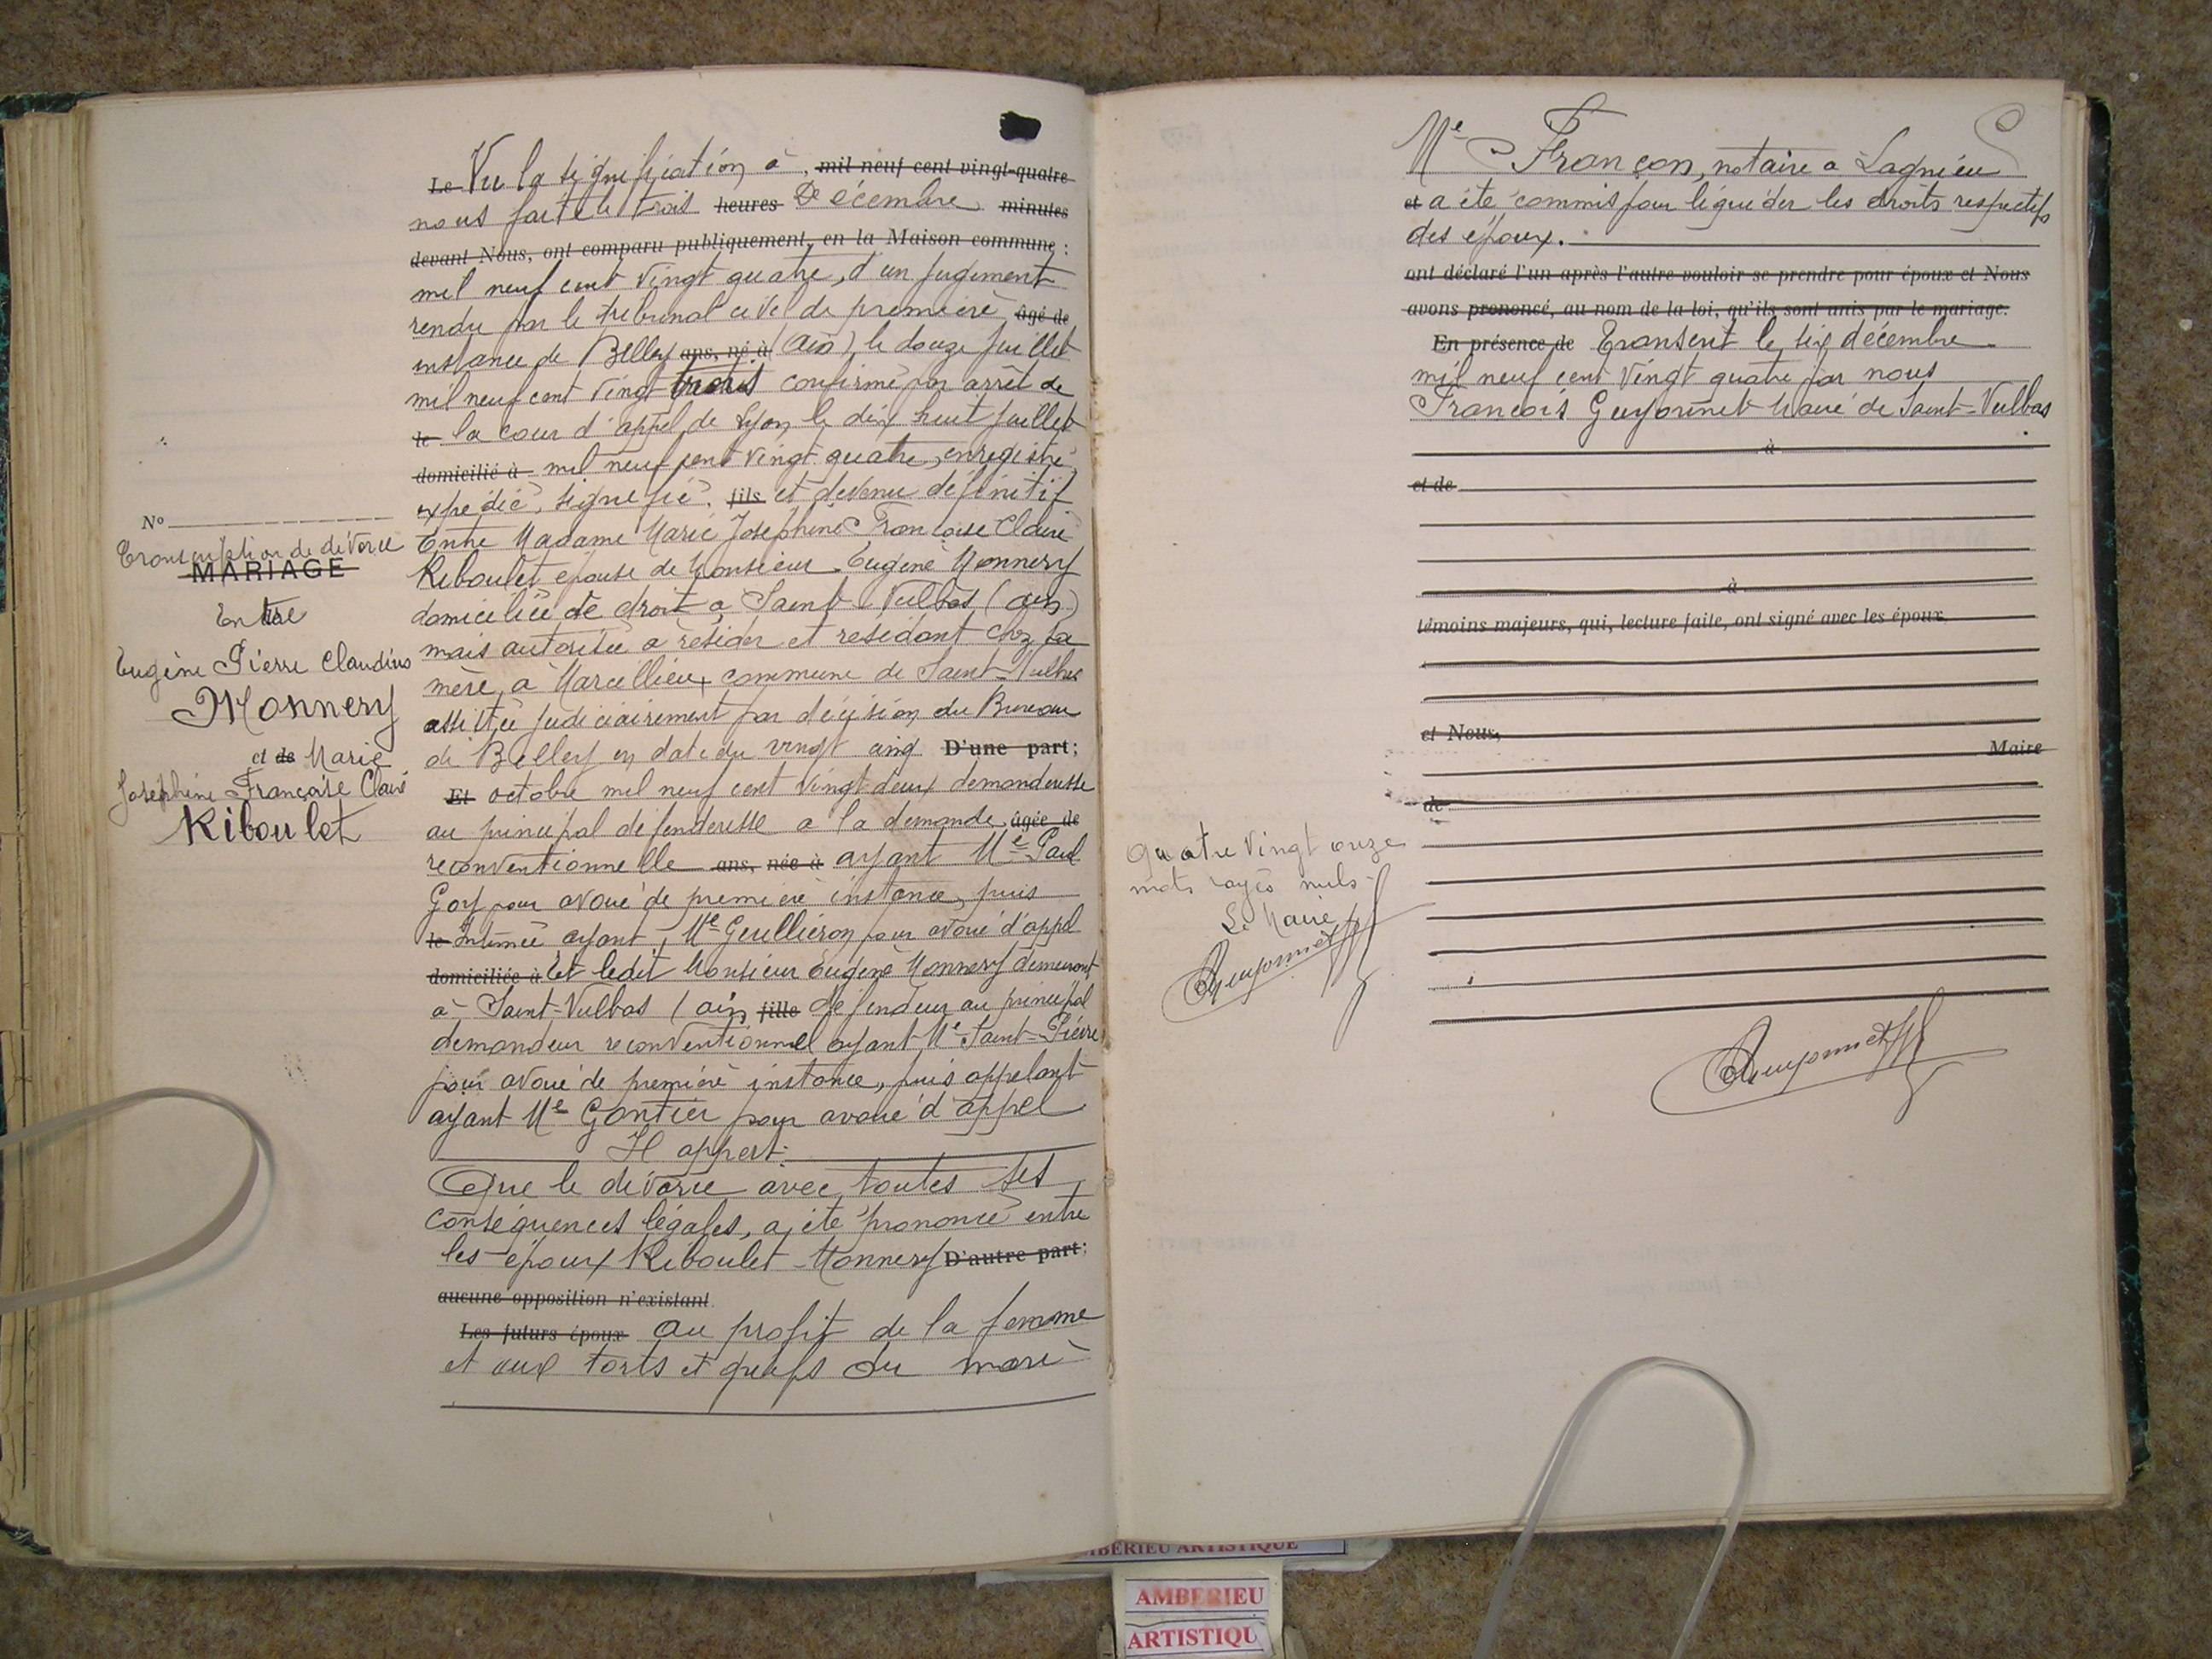 N°
Transcription de divorce
MARIAGE
Entre
Eugène Pierre Claudius
Monnery
et de Marie
Joséphine Françoise Claire
Riboulet
Le Vu la signification à , mil neuf cent vingt-quatre
nous faite le trois heures Décembre minutes
devant Nous, ont comparu publiquement, en la Maison commune :
mil neuf cent vingt quatre, d'un jugement
rendu par le tribunal civil de première âgé de
instance de Belley ans, né à (Ain), le douze juillet
mil neuf cent vingt trois confirmé par arrêt de
le la cour d'appel de Lyon le dix huit juillet
domicilié à mil neuf cent vingt quatre, enregistré
expédié, signifié, fils et devenu définitif
Entre Madame Marie Joséphine Françoise Claire
Riboulet épouse de Monsieur Eugène Monnery
domiciliée de droit à Saint-Vulbas (ain)
mais autorisée a résider et résidant chez sa
mère, à Marcillieux commune de Saint-Vulbas
assistée judiciairement par décision du Bureau
de Belley en date du vingt cinq D'une part;
Et octobre mil neuf cent vingt deux demanderesse
au principal défenderesse a la demande âgée de
reconventionnelle ans, née à ayant Me Paul
Goy pour avoué de première instance, puis
le Intimée ayant, Me Guillieron pour avoué d'appel
domiciliée à Et ledit Monsieur Eugène Monnery demeurant
à Saint-Vulbas (ain fille défendeur au principal
demandeur reconventionnel ayant Me Saint-Pierre
pour avoué de première instance, puis appelant
ayant Me Gontier pour avoué d'appel
Il appert:
Que le divorce avec toutes ses
conséquences légales, a été prononcé entre
les époux Riboulet-Monnery D'autre part;
aucune opposition n'existant
Les futurs époux au profit de la femme
et aux torts et griefs du mari
Me Françon, notaire a Lagnieu
et a été commis pour liquider les droits respectifs
des époux.
ont déclaré l'un après l'autre vouloir se prendre pour époux et Nous
avons prononcé, au nom de la loi, qu'ils sont unis par le mariage.
En présence de Transcrit le six décembre
mil neuf cent vingt quatre par nous
François Guyonnet Maire de Saint-Vulbas
à
et de
à
témoins majeurs, qui, lecture faite, ont signé avec les époux
et Nous,
Maire
de
Quatre vingt onze
mots rayés nuls
Le Maire
Guyonnet
Guyonnet
AMBERIEU ARTISTIQUE
AMBERIEU
ARTISTIQU